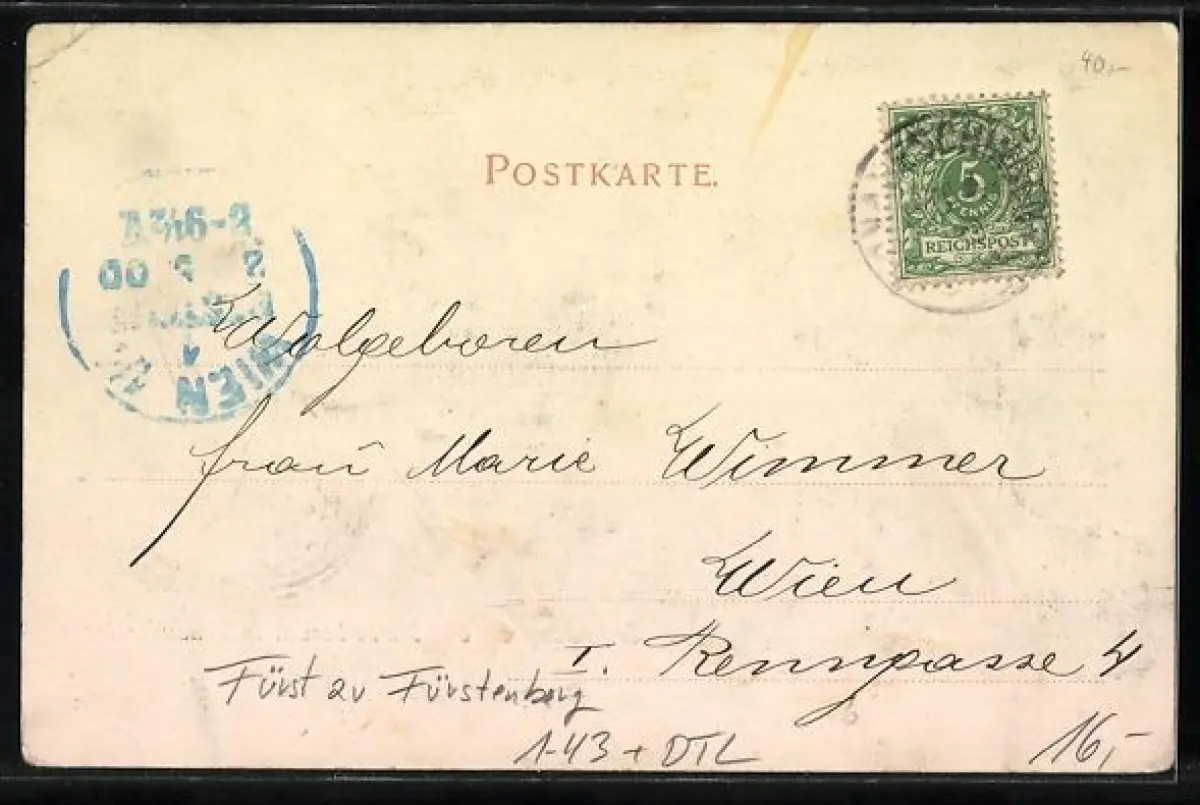 40,-
POSTKARTE.
5
PFENNIG
REICHSPOST
WIEN
Wolgeboren
Frau Marie Wimmer
Wien
I. Renngasse 4
Fürst zu Fürstenberg
1-43 + DTL
16,-